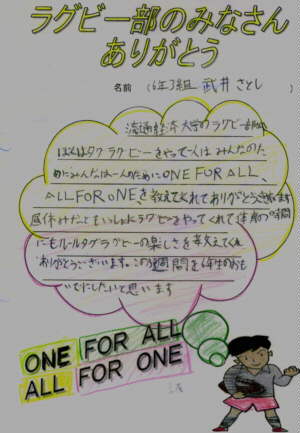 ラグビー部のみなさん
ありがとう
名前 (6年3組 武井 さとし )
流通経済大学のラグビー部
タグラグビーをやって一人はみんなのた
めにみんなは一人のためにONE FOR ALL、
ALL FOR ONEを教えてくれてありがとう
昼休みだともいっしょにラグビーをやってくれて体育の時間
にもルールタグラグビーの楽しさを教えてくれ
ありがとうございます。この週間を6年生のおも
いでにしたいと思います
ONE FOR ALL
ALL FOR ONE